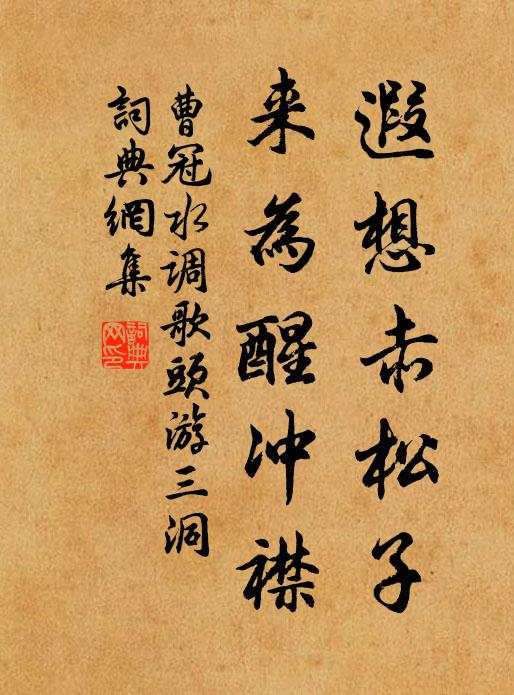 遐想赤松子
来為醒冲襟
曹冠水调歌頭游三洞
詞典網集
詞典网印